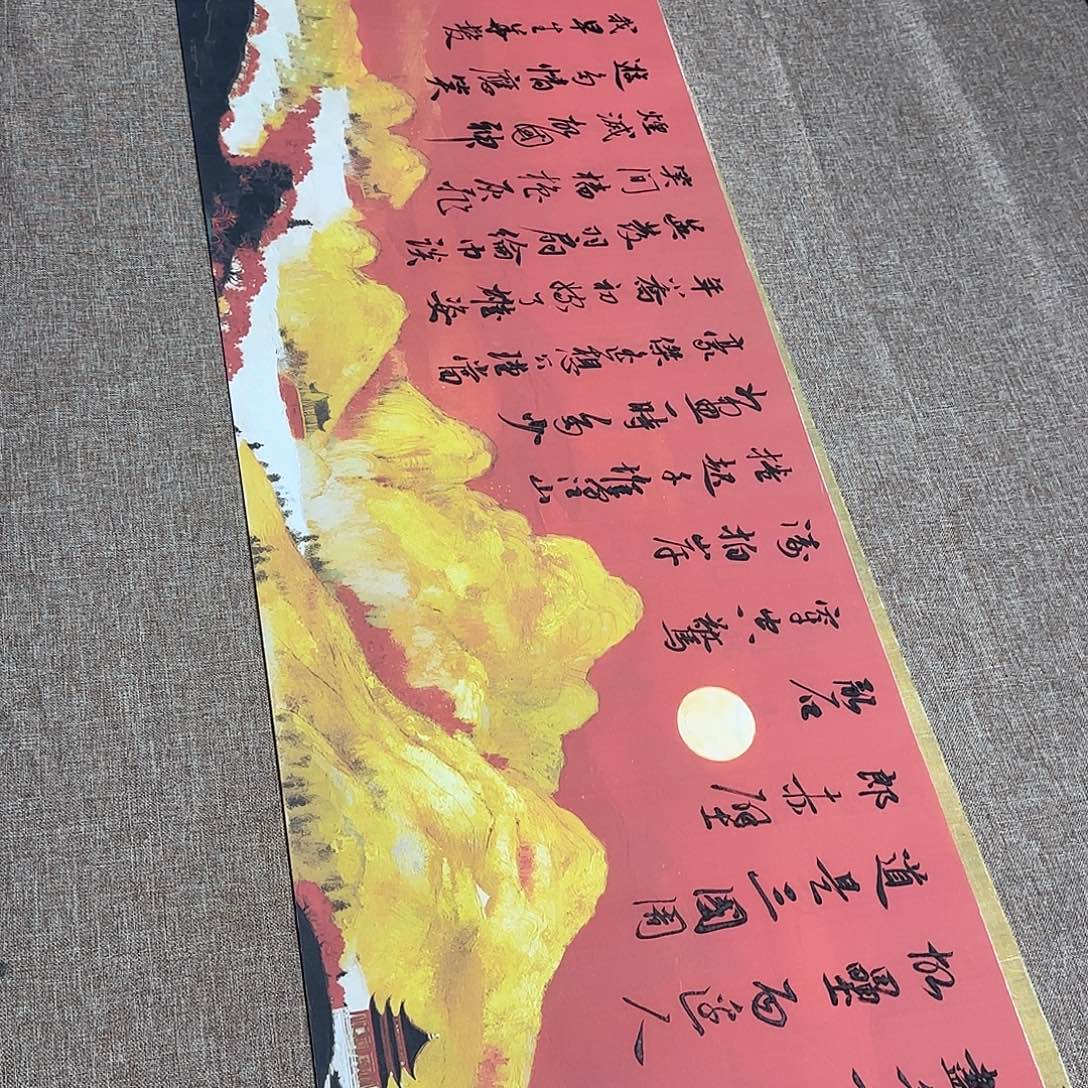 盡
故壘西邊人
道是三國周
郎赤壁
亂石
穿空驚
濤拍岸
捲起千堆雪江山
如畫一時多少
豪傑遙想公瑾當
年小喬初嫁了雄姿
英發羽扇綸巾談
笑间檣櫓灰飛
煙滅故國神
遊多情應笑
我早生華髮